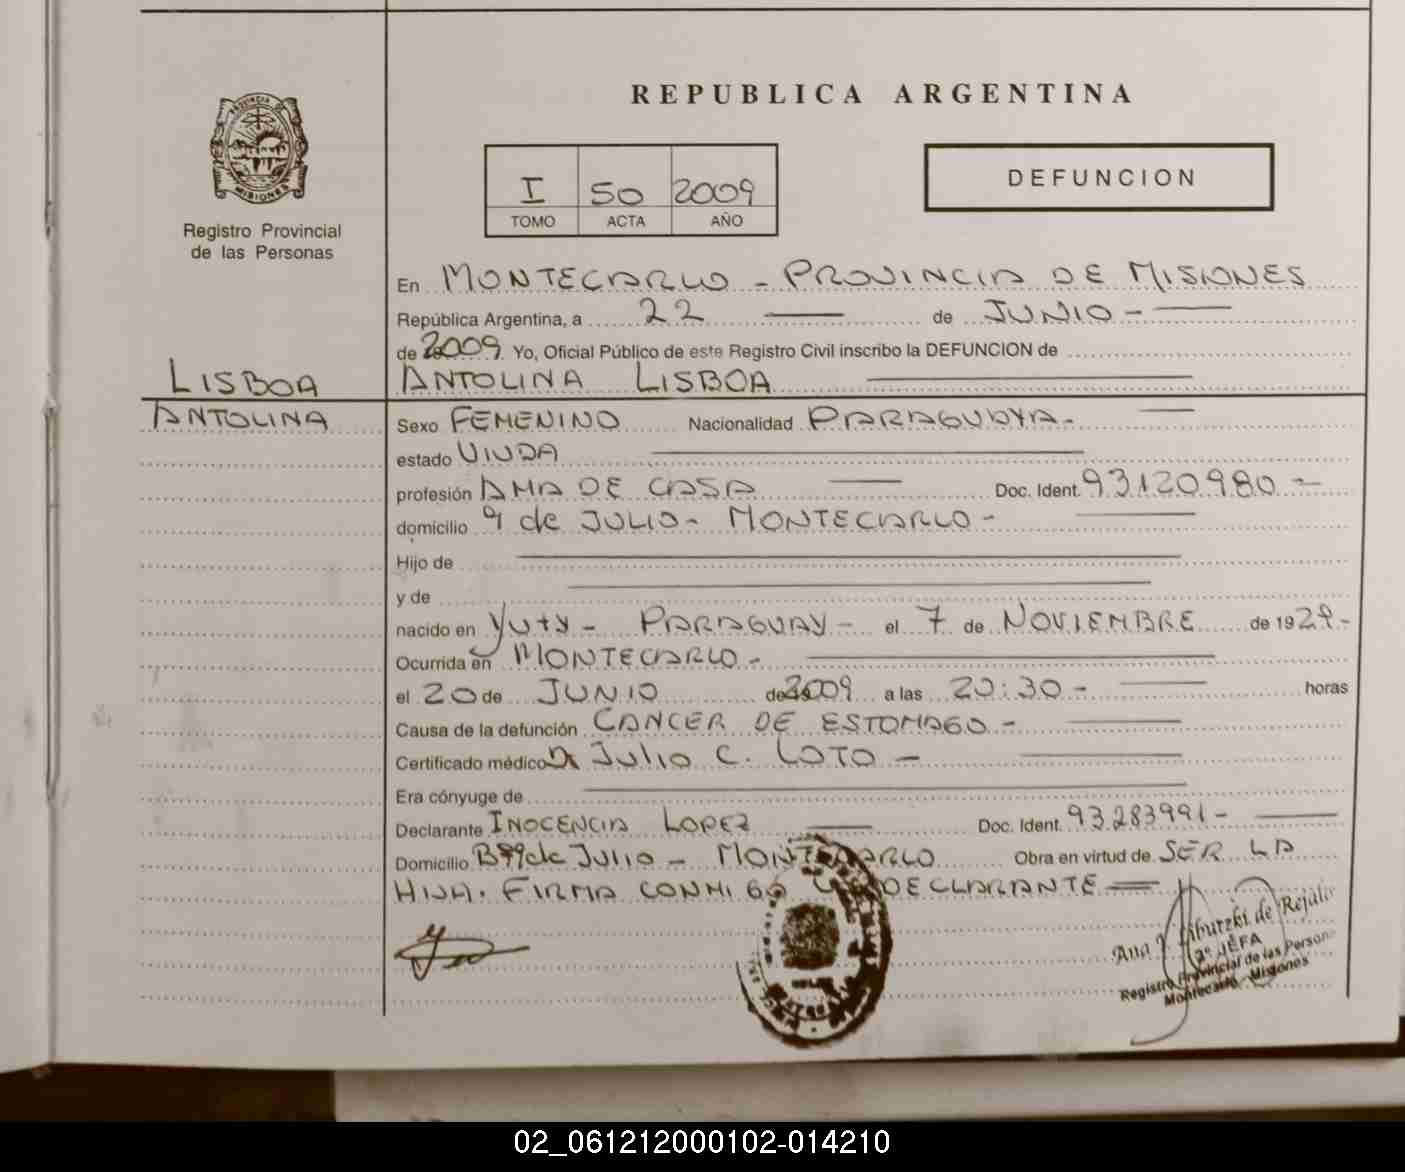 REPUBLICA ARGENTINA
PROVINCIA DE
MISIONES
Registro Provincial
de las Personas
I 50 2009
TOMO ACTA AÑO
DEFUNCION
En MONTECARLO - PROVINCIA DE MISIONES
República Argentina, a 22 de JUNIO -
de 2009 Yo, Oficial Público de este Registro Civil inscribo la DEFUNCION de
LISBOA
ANTOLINA LISBOA
ANTOLINA
Sexo FEMENINO Nacionalidad PARAGUAYA-
estado VIUDA
profesión AMA DE CASA Doc. Ident. 93120980 -
domicilio 9 de JULIO - MONTECARLO -
Hijo de
y de
nacido en Yuty - PARAGUAY - el 7 de NOVIEMBRE de 1929.-
Ocurrida en MONTECARLO -
el 20 de JUNIO de 2009 a las 20:30 - horas
Causa de la defunción CANCER DE ESTOMAGO -
Certificado médico Dr Julio C. LOTO -
Era cónyuge de
Declarante INOCENCIA LOPEZ Doc. Ident. 93.283991 -
Domicilio Bº 9 de Julio - MONTECARLO Obra en virtud de SER LA
HIJA. FIRMA CONMIGO LA DECLARANTE
Ana de Rejala
2º JEFA
Registro Provincial de las Personas
Montecarlo - Misiones
02_061212000102-014210